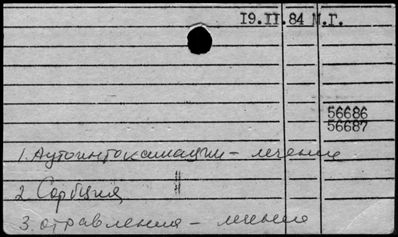 19.II.84 М.Г.
56686
56687
1. Аутоинтоксикации - лечение
2. Сорбция
3. отравления - лечение